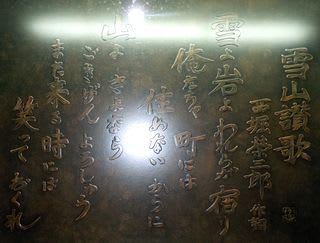 雪山讃歌
西堀栄三郎 作詞
雪よ岩よわれらが宿り
俺たちゃ町には
住めないからに
山よさよなら
ごきげんよろしゅう
また来る時には
笑っておくれ